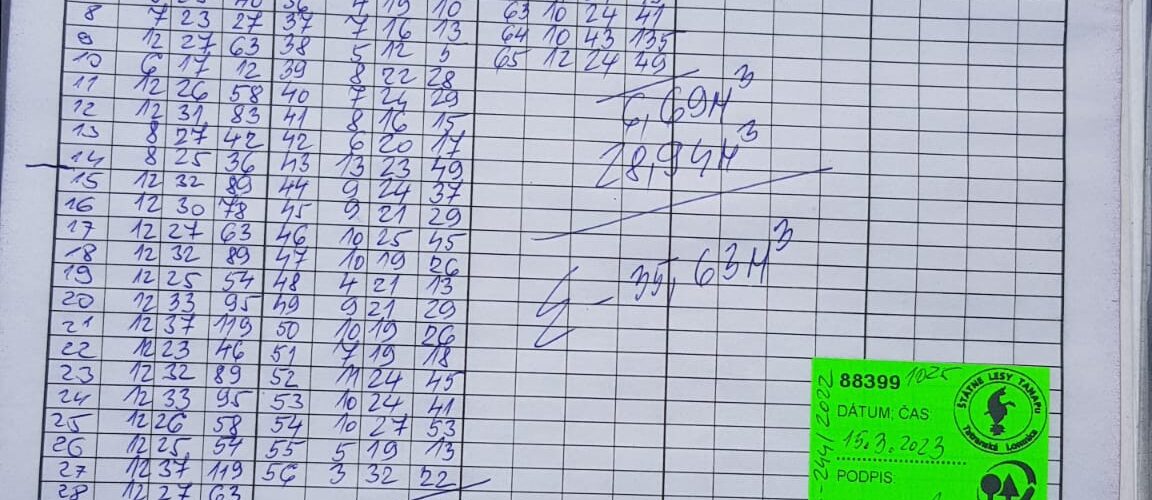 8 7 23 27 37 7 16 13 63 10 24 41
9 12 27 63 38 5 12 5 64 10 43 135
10 6 17 12 39 8 22 28 65 12 24 49
11 12 26 58 40 7 24 29
12 12 31 83 41 8 16 15
13 8 27 42 42 6 20 17
14 8 25 36 43 13 23 49
15 12 32 89 44 9 24 37
16 12 30 78 45 9 21 29
17 12 27 63 46 10 25 45
18 12 32 89 47 10 19 26
19 12 25 54 48 4 21 13
20 12 33 95 49 9 21 29
21 12 37 119 50 10 19 26
22 12 23 46 51 7 19 18
23 12 32 89 52 11 24 45
24 12 33 95 53 10 24 41
25 12 26 58 54 10 27 53
26 12 25 54 55 5 19 13
27 12 37 119 56 3 32 22
28 12 27 63
6,69M³
28,94M³
Σ - 35,63M³
88399 1025
DÁTUM; ČAS
15.3.2023
PODPIS
-244/2022
ŠTÁTNE LESY TANAPU
Tatranská Lomnica